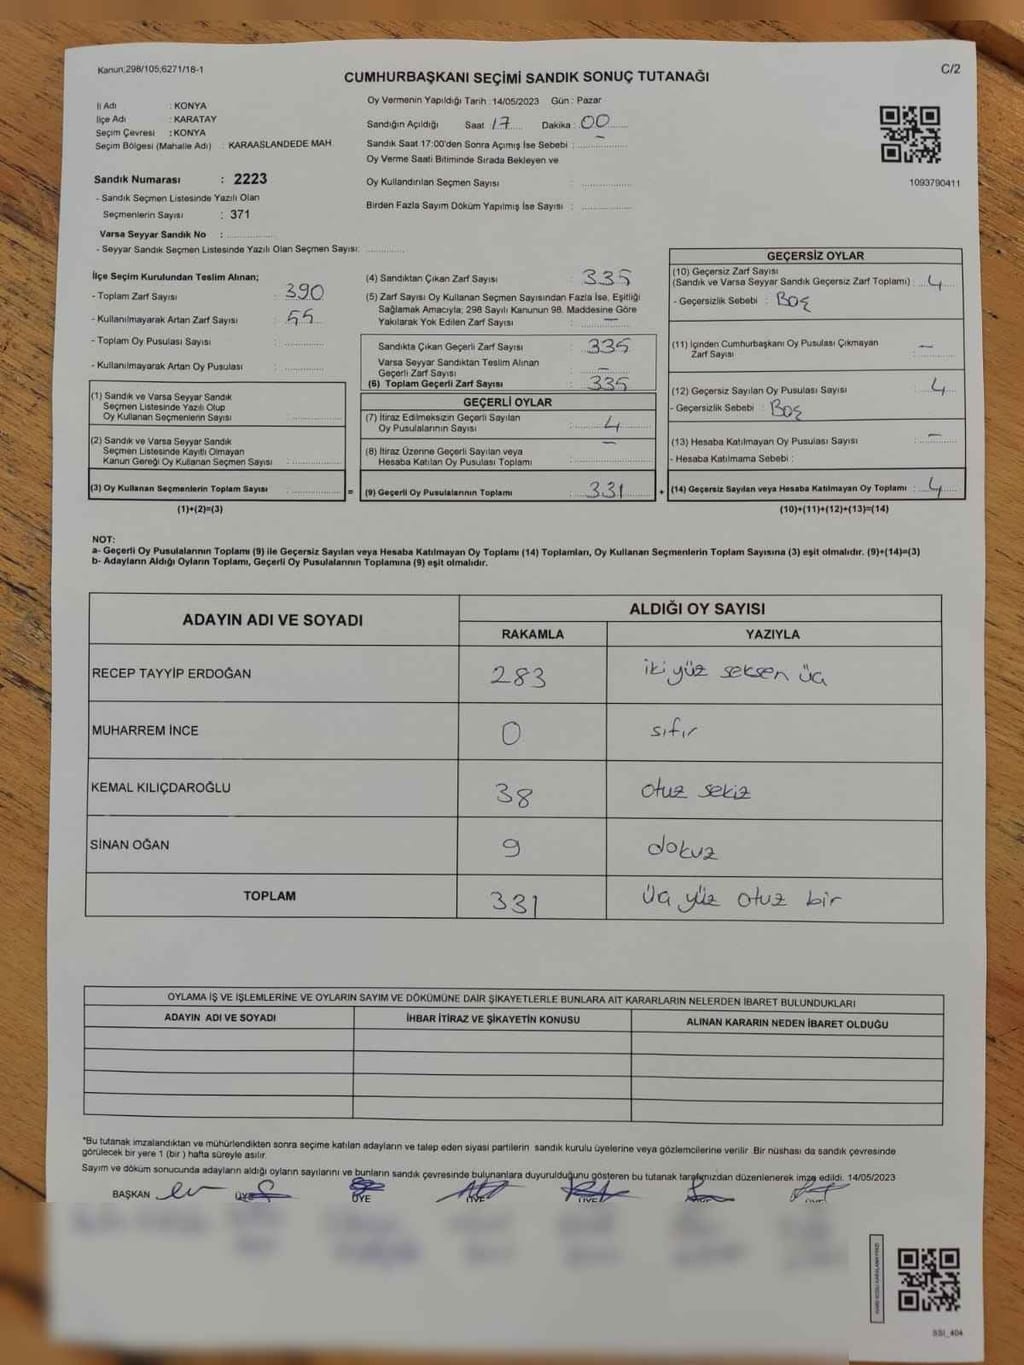 Kanun:298/105;6271/18-1
C/2
CUMHURBAŞKANI SEÇİMİ SANDIK SONUÇ TUTANAĞI
İl Adı : KONYA
İlçe Adı : KARATAY
Seçim Çevresi : KONYA
Seçim Bölgesi (Mahalle Adı) : KARAASLANDEDE MAH.
Oy Vermenin Yapıldığı Tarih :14/05/2023 Gün : Pazar
Sandığın Açıldığı Saat 17 Dakika 00
Sandık Saat 17:00'den Sonra Açımış İse Sebebi : –
Oy Verme Saati Bitiminde Sırada Bekleyen ve
Oy Kullandırılan Seçmen Sayısı :
Birden Fazla Sayım Döküm Yapılmış İse Sayısı :
1093790411
Sandık Numarası : 2223
- Sandık Seçmen Listesinde Yazılı Olan
Seçmenlerin Sayısı : 371
Varsa Seyyar Sandık No :
- Seyyar Sandık Seçmen Listesinde Yazılı Olan Seçmen Sayısı:
İlçe Seçim Kurulundan Teslim Alınan;
- Toplam Zarf Sayısı : 390
- Kullanılmayarak Artan Zarf Sayısı : 55
- Toplam Oy Pusulası Sayısı :
- Kullanılmayarak Artan Oy Pusulası :
(1) Sandık ve Varsa Seyyar Sandık
Seçmen Listesinde Yazılı Olup
Oy Kullanan Seçmenlerin Sayısı :
(2) Sandık ve Varsa Seyyar Sandık
Seçmen Listesinde Kayıtlı Olmayan
Kanun Gereği Oy Kullanan Seçmen Sayısı :
(3) Oy Kullanan Seçmenlerin Toplam Sayısı : =
(1)+(2)=(3)
(4) Sandıktan Çıkan Zarf Sayısı : 335
(5) Zarf Sayısı Oy Kullanan Seçmen Sayısından Fazla İse, Eşitliği
Sağlamak Amacıyla; 298 Sayılı Kanunun 98. Maddesine Göre
Yakılarak Yok Edilen Zarf Sayısı : –
Sandıkta Çıkan Geçerli Zarf Sayısı : 335
Varsa Seyyar Sandıktan Teslim Alınan
Geçerli Zarf Sayısı : –
(6) Toplam Geçerli Zarf Sayısı : 335
GEÇERLİ OYLAR
(7) İtiraz Edilmeksizin Geçerli Sayılan
Oy Pusulalarının Sayısı : 4
(8) İtiraz Üzerine Geçerli Sayılan veya
Hesaba Katılan Oy Pusulası Toplamı : –
(9) Geçerli Oy Pusulalarının Toplamı : 331 +
GEÇERSİZ OYLAR
(10) Geçersiz Zarf Sayısı
(Sandık ve Varsa Seyyar Sandık Geçersiz Zarf Toplamı) : 4
- Geçersizlik Sebebi : Boş
(11) İçinden Cumhurbaşkanı Oy Pusulası Çıkmayan
Zarf Sayısı : –
(12) Geçersiz Sayılan Oy Pusulası Sayısı : 4
- Geçersizlik Sebebi : Boş
(13) Hesaba Katılmayan Oy Pusulası Sayısı : –
- Hesaba Katılmama Sebebi :
(14) Geçersiz Sayılan veya Hesaba Katılmayan Oy Toplamı : 4
(10)+(11)+(12)+(13)=(14)
NOT:
a- Geçerli Oy Pusulalarının Toplamı (9) ile Geçersiz Sayılan veya Hesaba Katılmayan Oy Toplamı (14) Toplamları, Oy Kullanan Seçmenlerin Toplam Sayısına (3) eşit olmalıdır. (9)+(14)=(3)
b- Adayların Aldığı Oyların Toplamı, Geçerli Oy Pusulalarının Toplamına (9) eşit olmalıdır.
ADAYIN ADI VE SOYADI
ALDIĞI OY SAYISI
RAKAMLA YAZIYLA
RECEP TAYYİP ERDOĞAN 283 iki yüz seksen üç
MUHARREM İNCE 0 sıfır
KEMAL KILIÇDAROĞLU 38 otuz sekiz
SİNAN OĞAN 9 dokuz
TOPLAM 331 üç yüz otuz bir
OYLAMA İŞ VE İŞLEMLERİNE VE OYLARIN SAYIM VE DÖKÜMÜNE DAİR ŞİKAYETLERLE BUNLARA AİT KARARLARIN NELERDEN İBARET BULUNDUKLARI
ADAYIN ADI VE SOYADI İHBAR İTİRAZ VE ŞİKAYETİN KONUSU ALINAN KARARIN NEDEN İBARET OLDUĞU
*Bu tutanak imzalandıktan ve mühürlendikten sonra seçime katılan adayların ve talep eden siyasi partilerin sandık kurulu üyelerine veya gözlemcilerine verilir. Bir nüshası da sandık çevresinde
görülecek bir yere 1 (bir) hafta süreyle asılır.
Sayım ve döküm sonucunda adayların aldığı oyların sayılarını ve bunların sandık çevresinde bulunanlara duyurulduğunu gösteren bu tutanak tarafımızdan düzenlenerek imza edildi. 14/05/2023
BAŞKAN ÜYE ÜYE ÜYE ÜYE
SSI_404